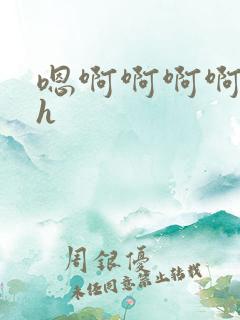 嗯啊啊啊啊
h
周银优
未经同意禁止转载